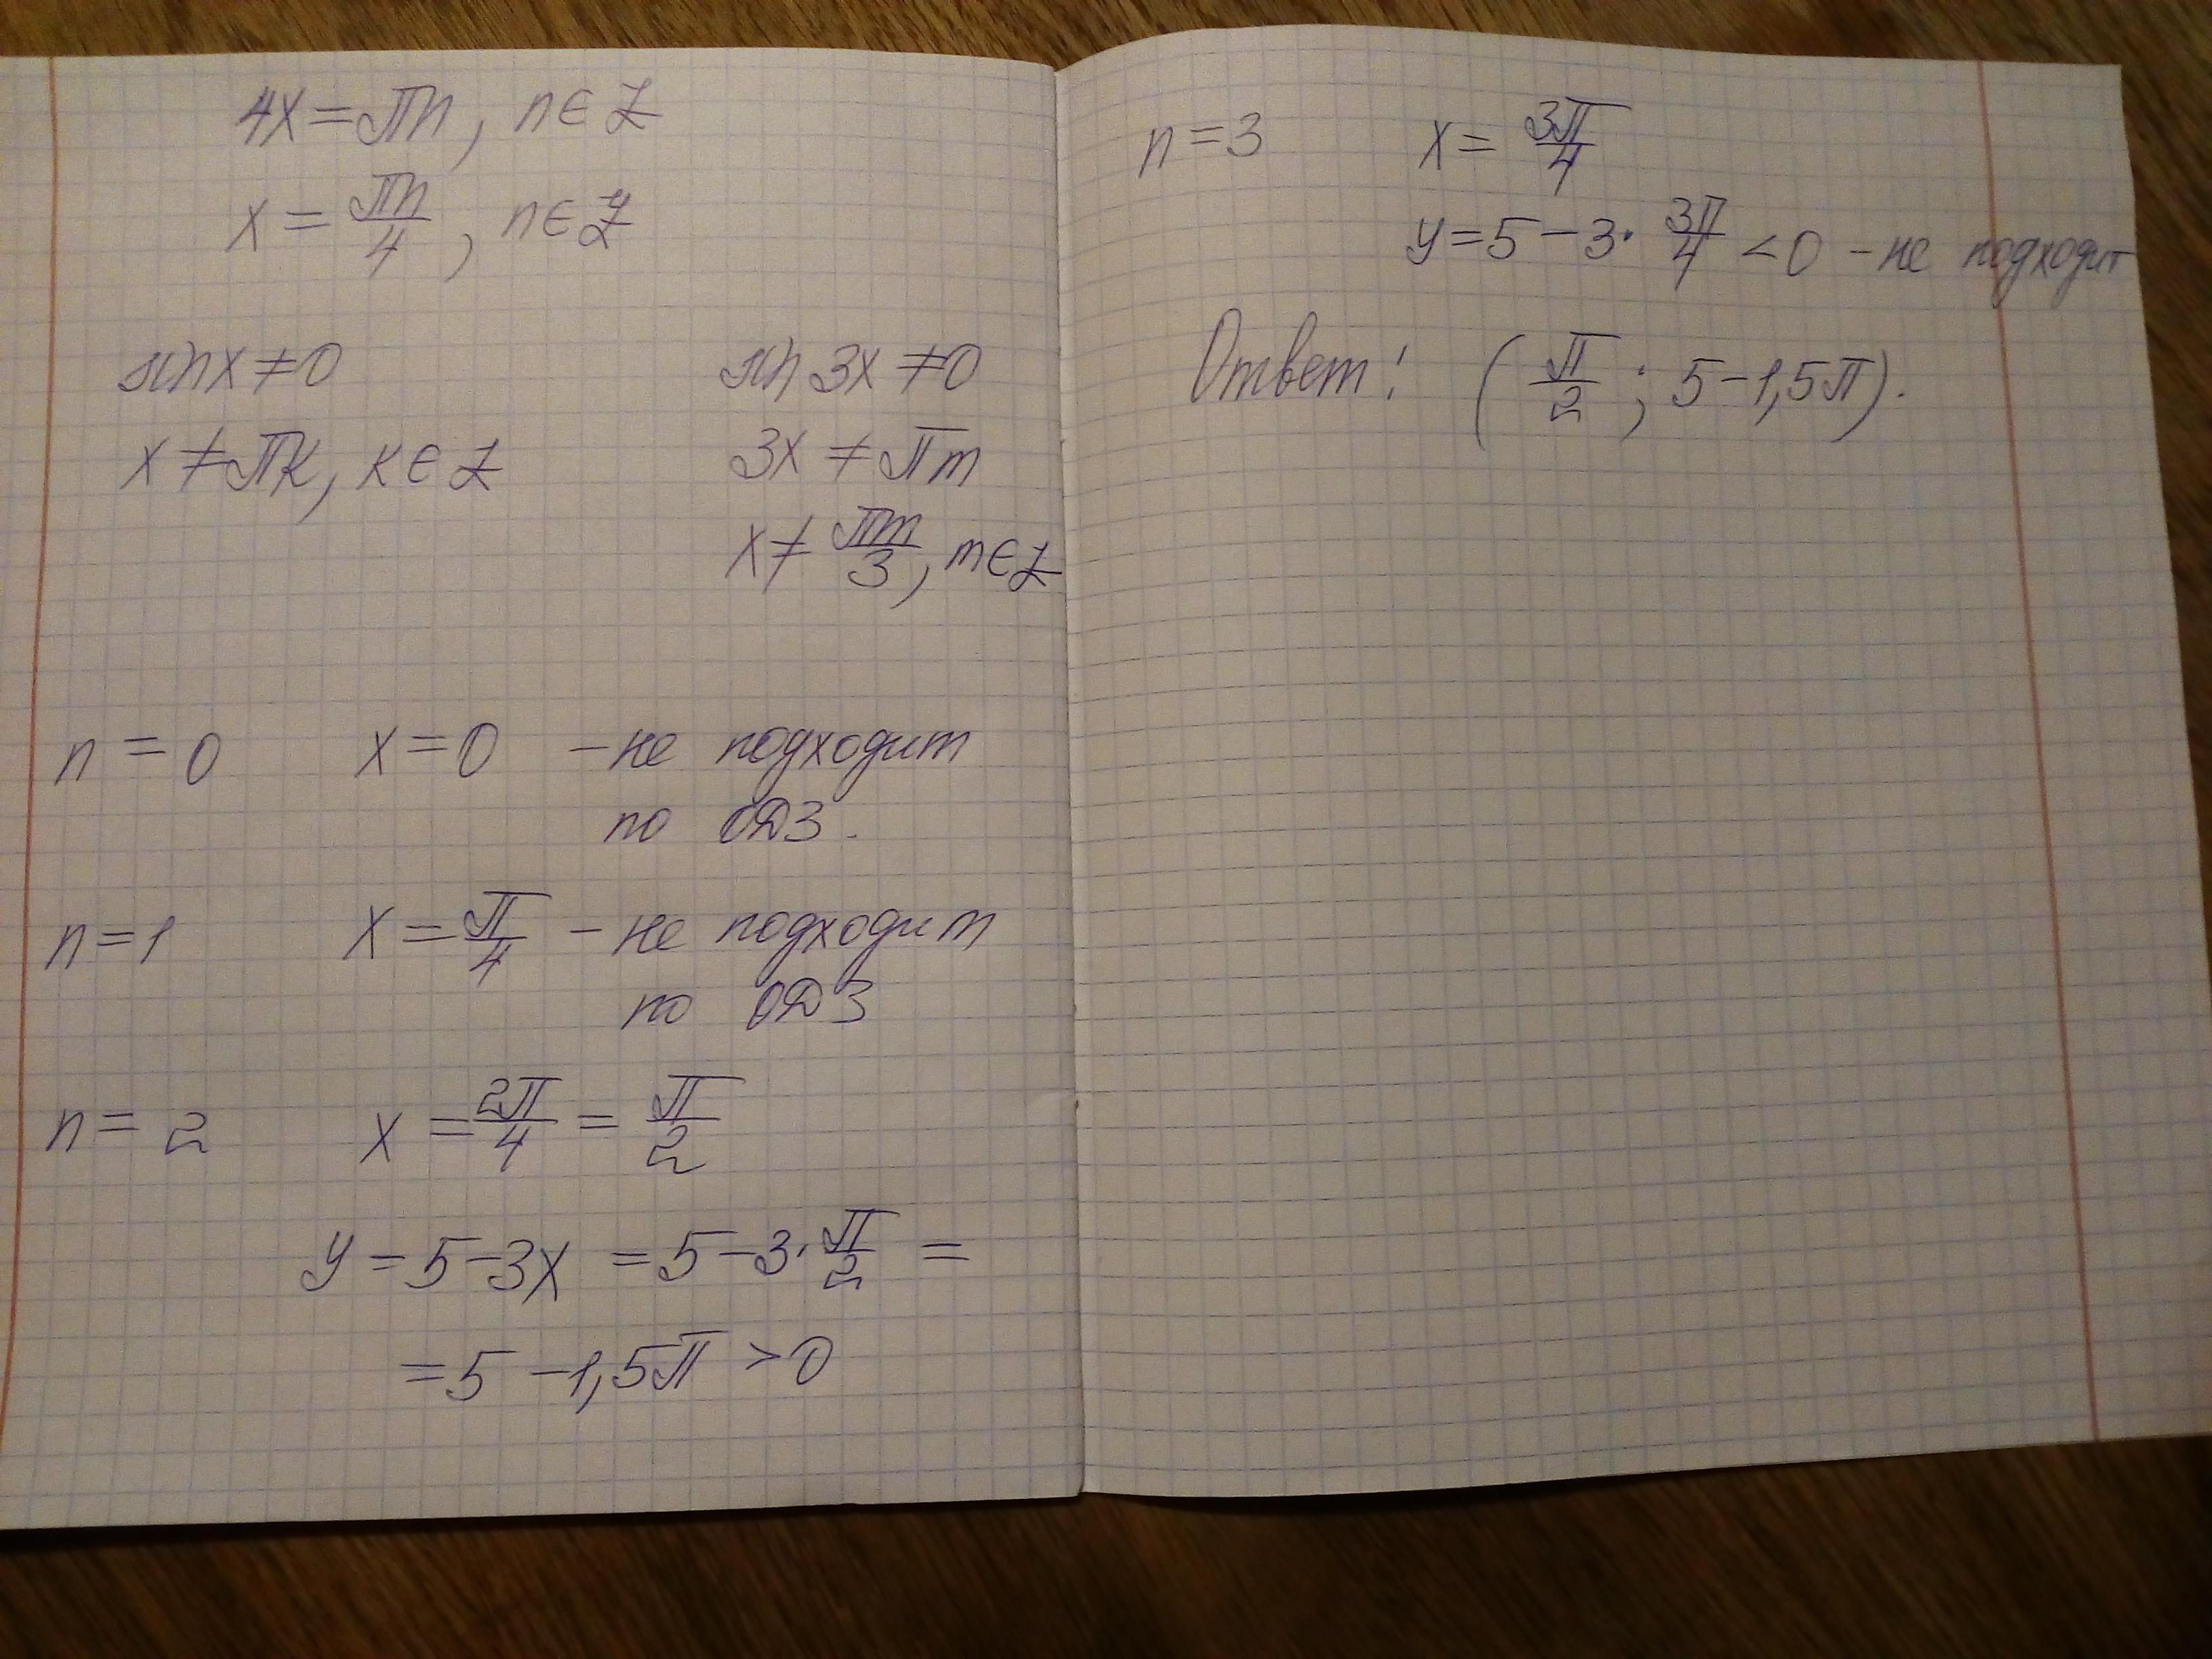 4x = πn, n ∈ Z
x = πn/4, n ∈ Z
sin x ≠ 0
x ≠ πк, к ∈ Z
sin 3x ≠ 0
3x ≠ πm
x ≠ πm/3, m ∈ Z
n = 0 x = 0 – не подходит
по ОДЗ.
n = 1 x = π/4 – не подходит
по ОДЗ
n = 2 x = 2π/4 = π/2
y = 5 – 3x = 5 – 3 · π/2 =
= 5 – 1,5π > 0
n = 3 x = 3π/4
y = 5 – 3 · 3π/4 < 0 – не подходит
Ответ: (π/2; 5 – 1,5π).